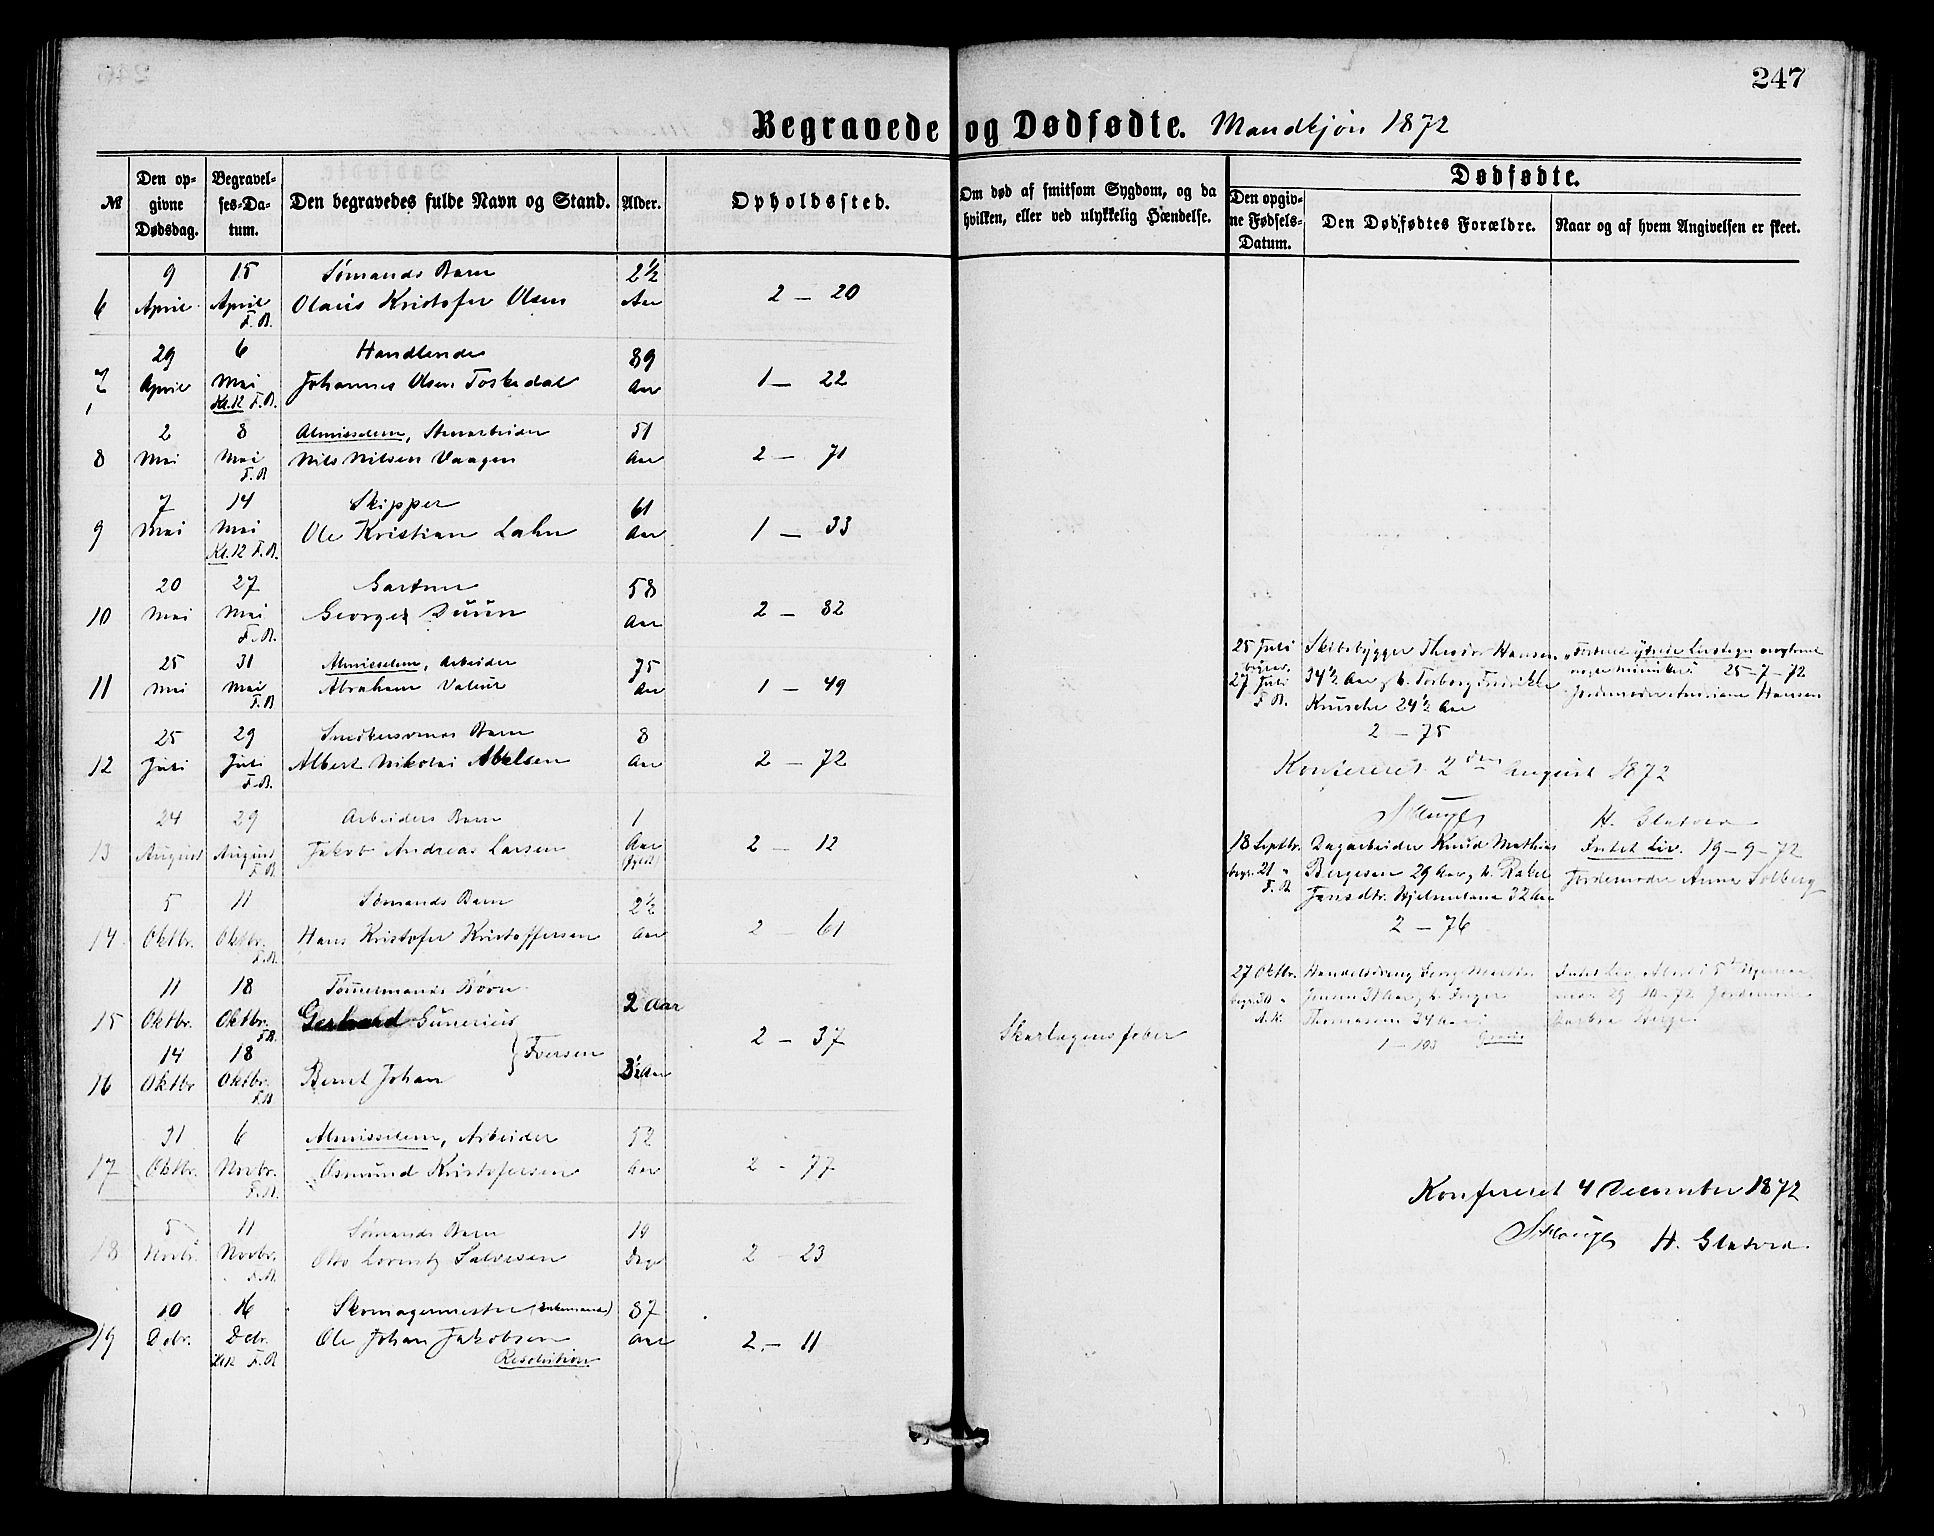 247
Begravede og Dødfødte. Mandkjøn 1872
№
Den op-
givne
Dødsdag.
Begravel-
ses-Da-
tum.
Den begravedes fulde Navn og Stand.
Alder.
Opholdssted.
Om død af smitsom Sygdom, og da
hvilken, eller ved ulykkelig Hændelse.
Dødfødte.
Den opgiv-
ne Fødsels-
Datum.
Den Dødfødtes Forældre.
Naar og af hvem Angivelsen er skeet.
9 15 Sømands Barn 2½
6 April April Olaus Kristofer Olsen Aar 2 – 20
F. B.
29 6 Handlende 89
7 April Mai Johannes Olsen Toskedal Aar 1 – 22
Kl. 12 F. B.
2 8 Almisselem, Stenarbeider 51
8 Mai Mai Nils Nilsen Vaagen Aar 2 – 71
F. B
7 14 Skipper 61
9 Mai Mai Ole Kristian Lahn Aar 1 – 33
Kl. 12 F. B.
20 27 Gartner 58
10 Mai Mai George Duun Aar 2 – 82
F. B.
25 31 Almisselem, Arbeider 75
11 Mai Mai Abraham Valeur Aar 1 – 49
F. B
25 29 Snedkersvends Barn 8
12 Juli Juli Albert Nikolai Abelsen Aar 2 – 72
F. B.
24 29 Arbeiders Barn 1
13 August August Jakob Andreas Larsen Aar 2 – 12
F. B
5 11 Sømands Barn 2½
14 Oktbr. Oktbr. Hans Kristofer Kristoffersen Aar 2 – 61
F. B.
11 18 Tømmermands Børn
15 Oktbr. Oktbr. Gerhard Gunerius 2 Aar
F. B.
14 18 } Iversen 2 – 37 Skarlagensfeber
16 Oktbr Oktbr. Bernt Johan 3½ Aar
F. B
31 6 Almisselem, Arbeider 52
17 Oktbr. Novbr. Osmund Kristofersen Aar 2 – 77
F. B.
5 11 Sømands Barn 19
18 Novbr. Novbr. Otto Lorentz Salvesen Dage 2 – 23
F. B.
10 16 Skomagermester (Enkemand) 87
19 Debr. Debr. Ole Johan Jakobsen Aar 2 – 11
Kl 12 F. B Resolution
25 Juli Skibsbygger Theodor Hansen
begrav.
27 Juli 34½ Aar, h. Torborg Fredrikke 25-7-72
F. B. Krusche 24½ Aar Jordemoder Hansen
2 – 75
Konfereret 2den August 1872
H. Glatved
18 Septbr. Dagarbeider Knud Mathias Intet Liv. 19-9-72
begr. 21 " Bergesen 29 Aar, h. Rakel Jordemoder Anna Solberg
F. B Jensdtr. Hjelmeland 32 Aar
2 – 76
27 Oktbr. Jensen 31 Aar, h. Inger 29-10-72 Jordemoder
begr. 30 "
Thomasen 34 Aar
1 – 103
Konfereret 4 December 1872
H. Glatved